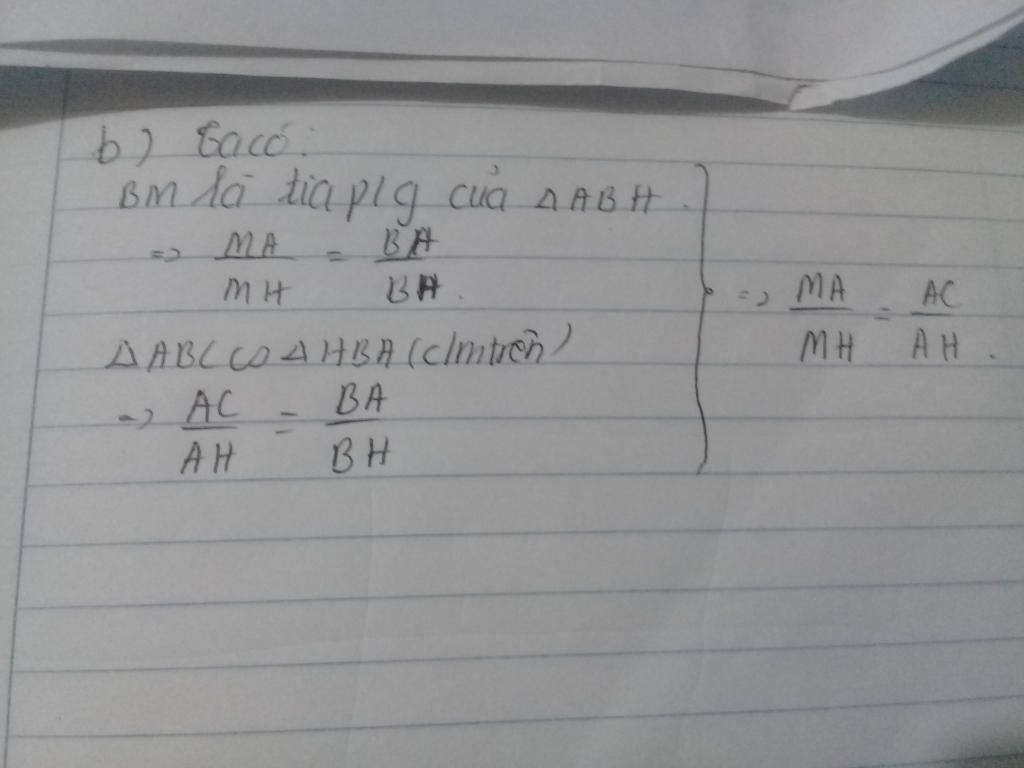 b) Ta có:
BM là tia p/g của △ABH.
=> MA/MH = BA/BH.
△ABC ∽ △HBA (c/m trên)
=> AC/AH = BA/BH
=> MA/MH = AC/AH.